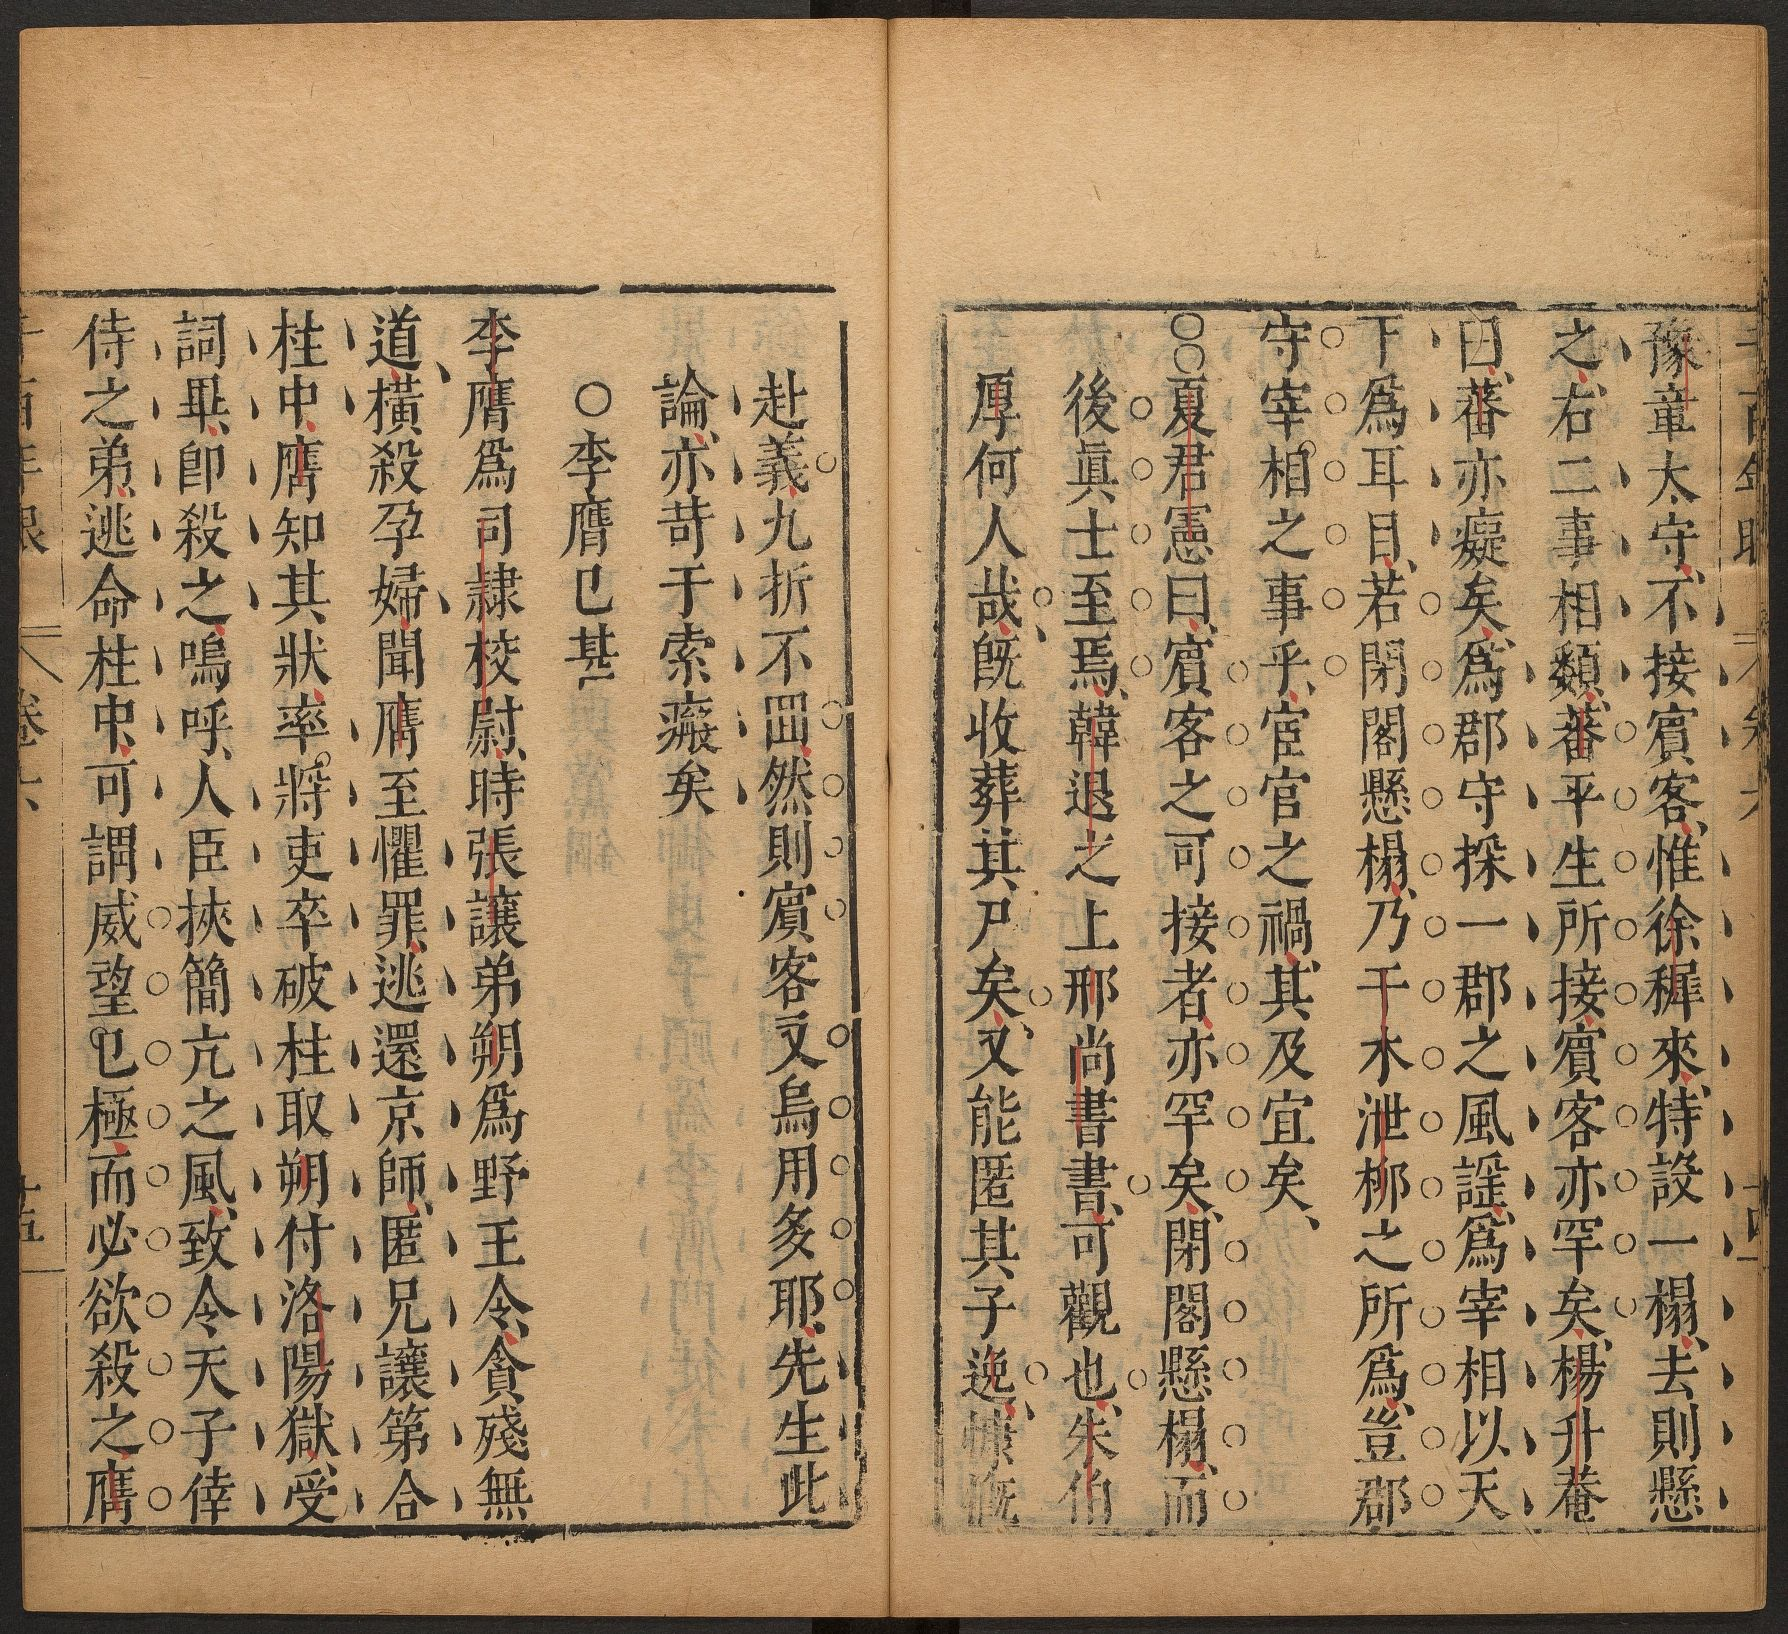 豫章太守不接賓客惟徐穉來特設一榻去則懸
之右二事相類蕃平生所接賓客亦罕矣楊升菴
曰蕃亦癡矣爲郡守採一郡之風謡爲宰相以天
下爲耳目若閉閣懸榻乃干木泄柳之所爲豈郡
守宰相之事乎宦官之禍其及宜矣
夏君憲曰賓客之可接者亦罕矣閉閣懸榻而
後眞士至焉韓退之上邢尚書書可觀也朱伯
厚何人哉旣收葬其尸矣又能匿其子逸慷慨
赴義九折不囬然則賓客又烏用多耶先生此
論亦苛于索瘢矣
○李膺已甚
李膺爲司隸校尉時張讓弟朔爲野王令貪殘無
道橫殺孕婦聞膺至懼罪逃還京師匿兄讓第合
柱中膺知其狀率將吏卒破柱取朔付洛陽獄受
詞畢卽殺之嗚呼人臣挾簡亢之風致令天子倖
侍之弟逃命柱中可謂威望已極而必欲殺之膺
卷六
十五